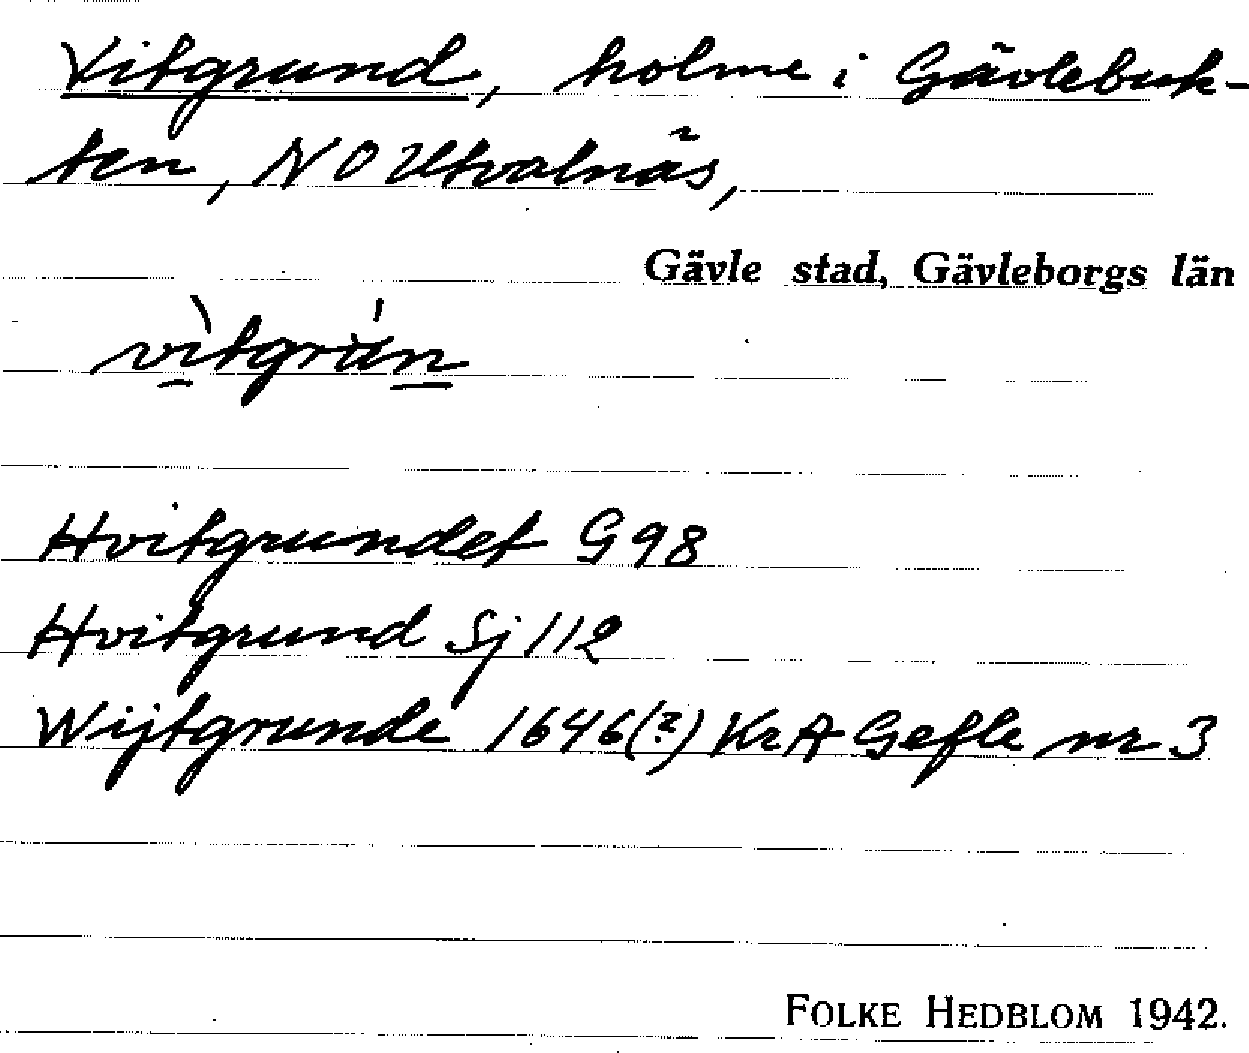 Vitgrund, holme i Gävlebuk-
ten, NO Utvalnäs,
Gävle stad, Gävleborgs län
vìtgrún
Hvitgrundet G 98
Hvitgrund Sj 112
Wijtgrunde 1646(?) KrA Gefle nr 3
FOLKE HEDBLOM 1942.